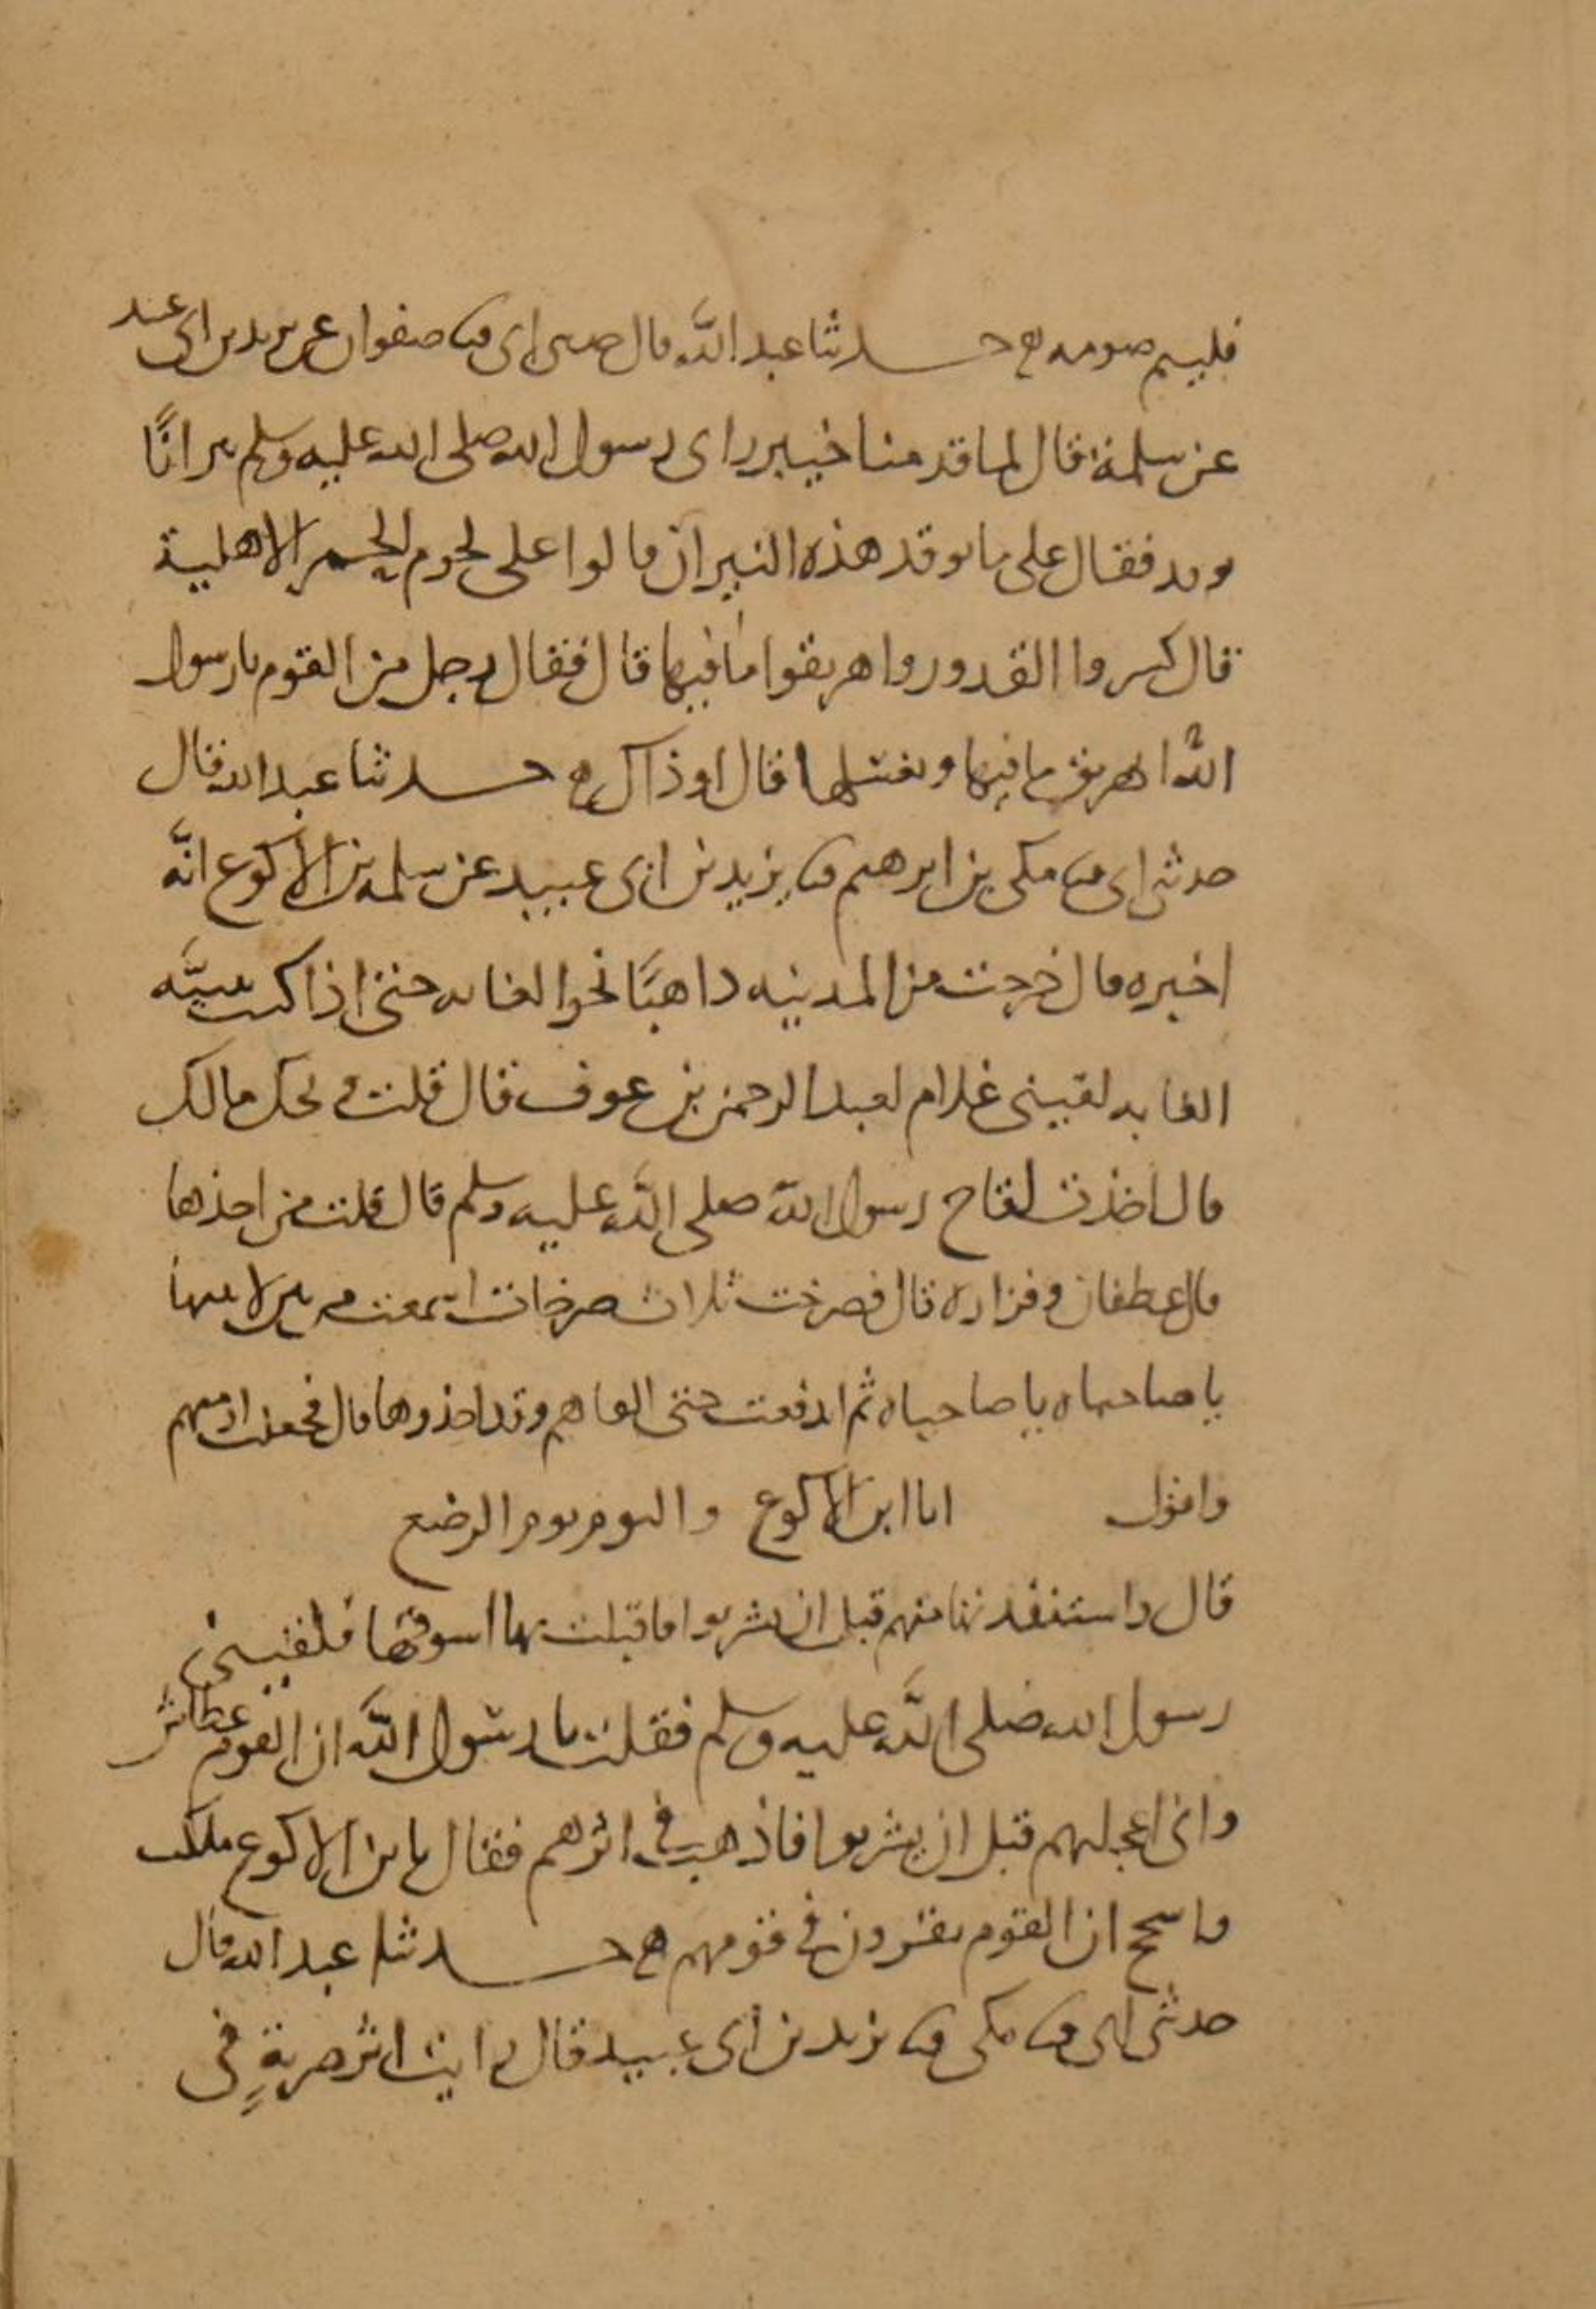 فليتم صومه ح حدثنا عبد الله قال حدثنى ابى ثنا صفوان عن يزيد بن ابى عبيد
عن سلمة قال لما قدمنا خيبر راى رسول الله صلى الله عليه وسلم نيرانًا
توقد فقال على ما توقد هذه النيران قالوا على لحوم الحمر الاهلية
قال كسروا القدور واهريقوا ما فيها قال فقال رجل من القوم يا رسول
الله انهريق ما فيها ونغسلها قال او ذاك ح حدثنا عبد الله قال
حدثنى ابى ثنا مكى بن ابرهيم ثنا يزيد بن ابى عبيد عن سلمه بن الاكوع انَّه
اخبره قال خرجت من المدينه ذاهبًا نحو الغابه حتى اذا كنت بثنيَّه
الغابه لقينى غلام لعبد الرحمن بن عوف قال قلت ويحك مالك
قال اخذت لقاح رسول الله صلى الله عليه وسلم قال قلت من اخذها
قال غطفان وفزاره قال فصرخت ثلاث صرخات اسمعت من بين لابتيها
يا صاحباه يا صاحباه ثم اندفعت حتى القاهم وقد اخذوها قال فجعلت ارميهم
واقول انا ابن الاكوع واليوم يوم الرضع
قال فاستنقذتها منهم قبل ان يشربوا فاقبلت بها اسوقها فلقينى
رسول الله صلى الله عليه وسلم فقلت يا رسول الله ان القوم عطاش
وانى اعجلتهم قبل ان يشربوا فاذهب فى اثرهم فقال يا بن الاكوع ملكت
فاسجح ان القوم يقرون فى قومهم ح حدثنا عبد الله قال
حدثنى ابى ثنا مكى ثنا يزيد بن ابى عبيد قال رايت اثر ضربةٍ فى